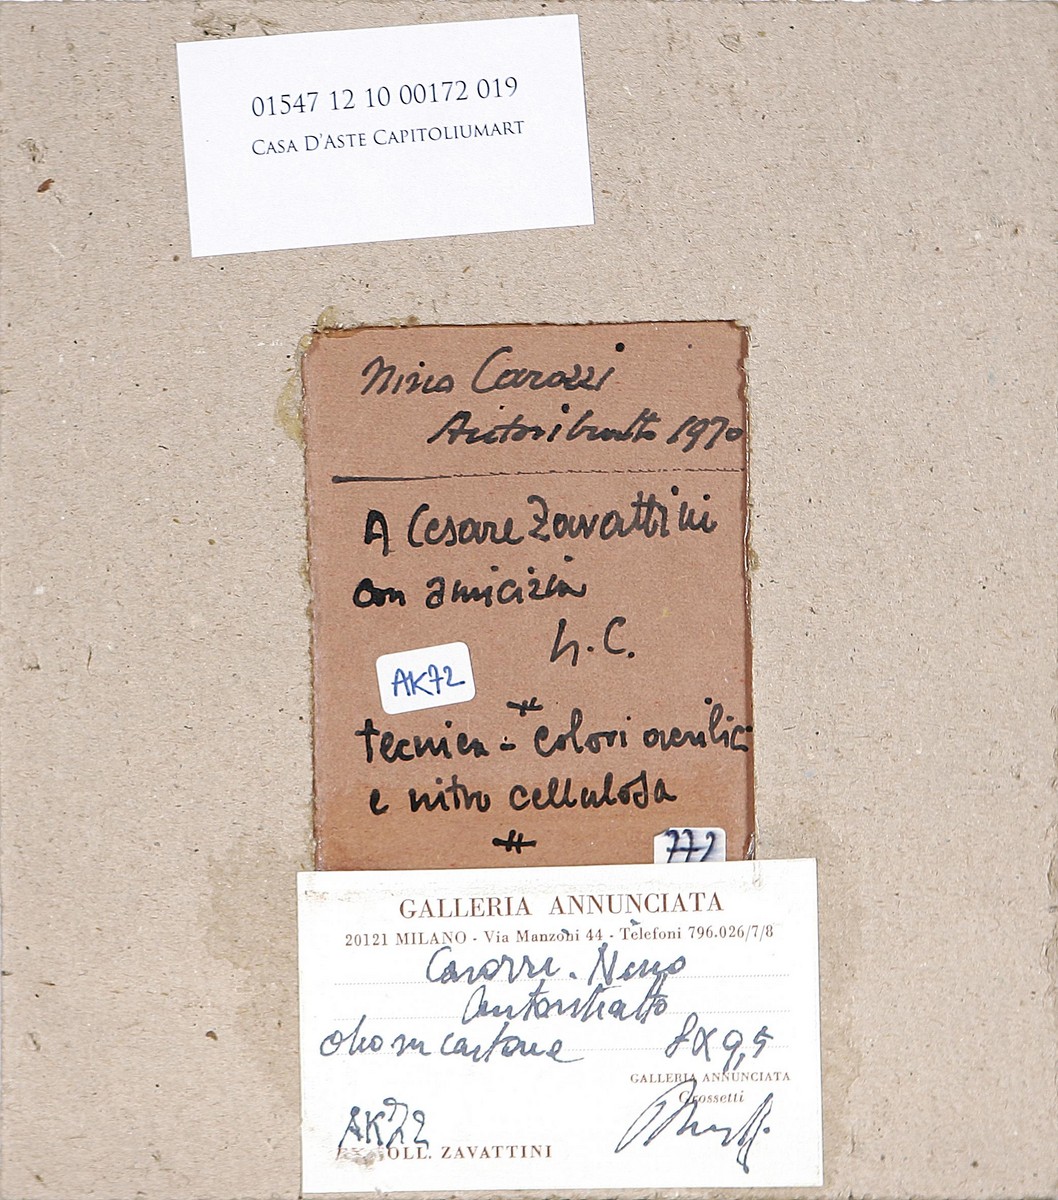 01547 12 10 00172 019
CASA D'ASTE CAPITOLIUMART
Nino Carozzi
Autoritratto 1970
A Cesare Zavattini
con amicizia
N.C.
AK72
tecnica - colori acrilici
e nitro cellulosa
772
GALLERIA ANNUNCIATA
20121 MILANO - Via Manzoni 44 - Telefoni 796.026/7/8
Carozzi. Nino
Autoritratto
olio su cartone 8x9,5
GALLERIA ANNUNCIATA
Grossetti
AK72
OLL. ZAVATTINI